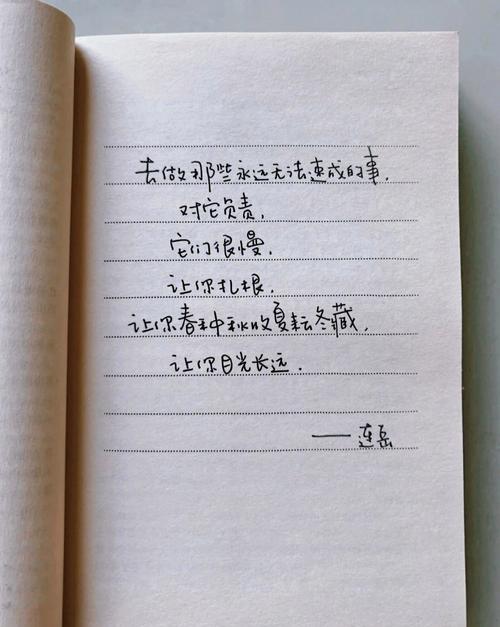 去做那些永远无法速成的事,
对它负责,
它们很慢,
让你扎根,
让你春种秋收夏耘冬藏,
让你目光长远.
——连岳